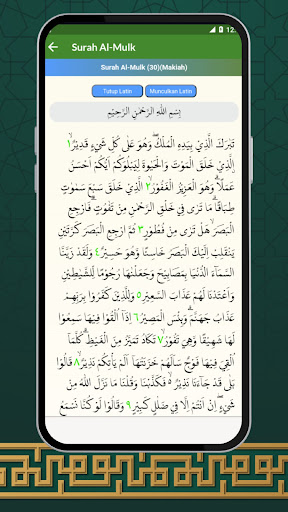 Surah Al-Mulk
Surah Al-Mulk (30)(Makiah)
Tutup Latin
Munculkan Latin
بِسْمِ اللّٰهِ الرَّحْمٰنِ الرَّحِيْمِ
تَبٰرَكَ الَّذِيْ بِيَدِهِ الْمُلْكُۖ وَهُوَ عَلٰى كُلِّ شَيْءٍ قَدِيْرٌۙ ١
ࣙالَّذِيْ خَلَقَ الْمَوْتَ وَالْحَيٰوةَ لِيَبْلُوَكُمْ اَيُّكُمْ اَحْسَنُ
عَمَلًاۗ وَهُوَ الْعَزِيْزُ الْغَفُوْرُۙ ٢ الَّذِيْ خَلَقَ سَبْعَ سَمٰوٰتٍ
طِبَاقًاۗ مَا تَرٰى فِيْ خَلْقِ الرَّحْمٰنِ مِنْ تَفٰوُتٍۗ فَارْجِعِ
الْبَصَرَۙ هَلْ تَرٰى مِنْ فُطُوْرٍ ٣ ثُمَّ ارْجِعِ الْبَصَرَ كَرَّتَيْنِ
يَنْقَلِبْ اِلَيْكَ الْبَصَرُ خَاسِئًا وَّهُوَ حَسِيْرٌ ٤ وَلَقَدْ زَيَّنَّا
السَّمَاۤءَ الدُّنْيَا بِمَصَابِيْحَ وَجَعَلْنٰهَا رُجُوْمًا لِّلشَّيٰطِيْنِ
وَاَعْتَدْنَا لَهُمْ عَذَابَ السَّعِيْرِ ٥ وَلِلَّذِيْنَ كَفَرُوْا بِرَبِّهِمْ
عَذَابُ جَهَنَّمَۗ وَبِئْسَ الْمَصِيْرُ ٦ اِذَآ اُلْقُوْا فِيْهَا سَمِعُوْا
لَهَا شَهِيْقًا وَّهِيَ تَفُوْرُۙ ٧ تَكَادُ تَمَيَّزُ مِنَ الْغَيْظِۗ كُلَّمَآ
اُلْقِيَ فِيْهَا فَوْجٌ سَاَلَهُمْ خَزَنَتُهَآ اَلَمْ يَأْتِكُمْ نَذِيْرٌۙ ٨ قَالُوْا
بَلٰى قَدْ جَاۤءَنَا نَذِيْرٌ ەۙ فَكَذَّبْنَا وَقُلْنَا مَا نَزَّلَ اللّٰهُ مِنْ
شَيْءٍۖ اِنْ اَنْتُمْ اِلَّا فِيْ ضَلٰلٍ كَبِيْرٍ ٩ وَقَالُوْا لَوْ كُنَّا نَسْمَعُ